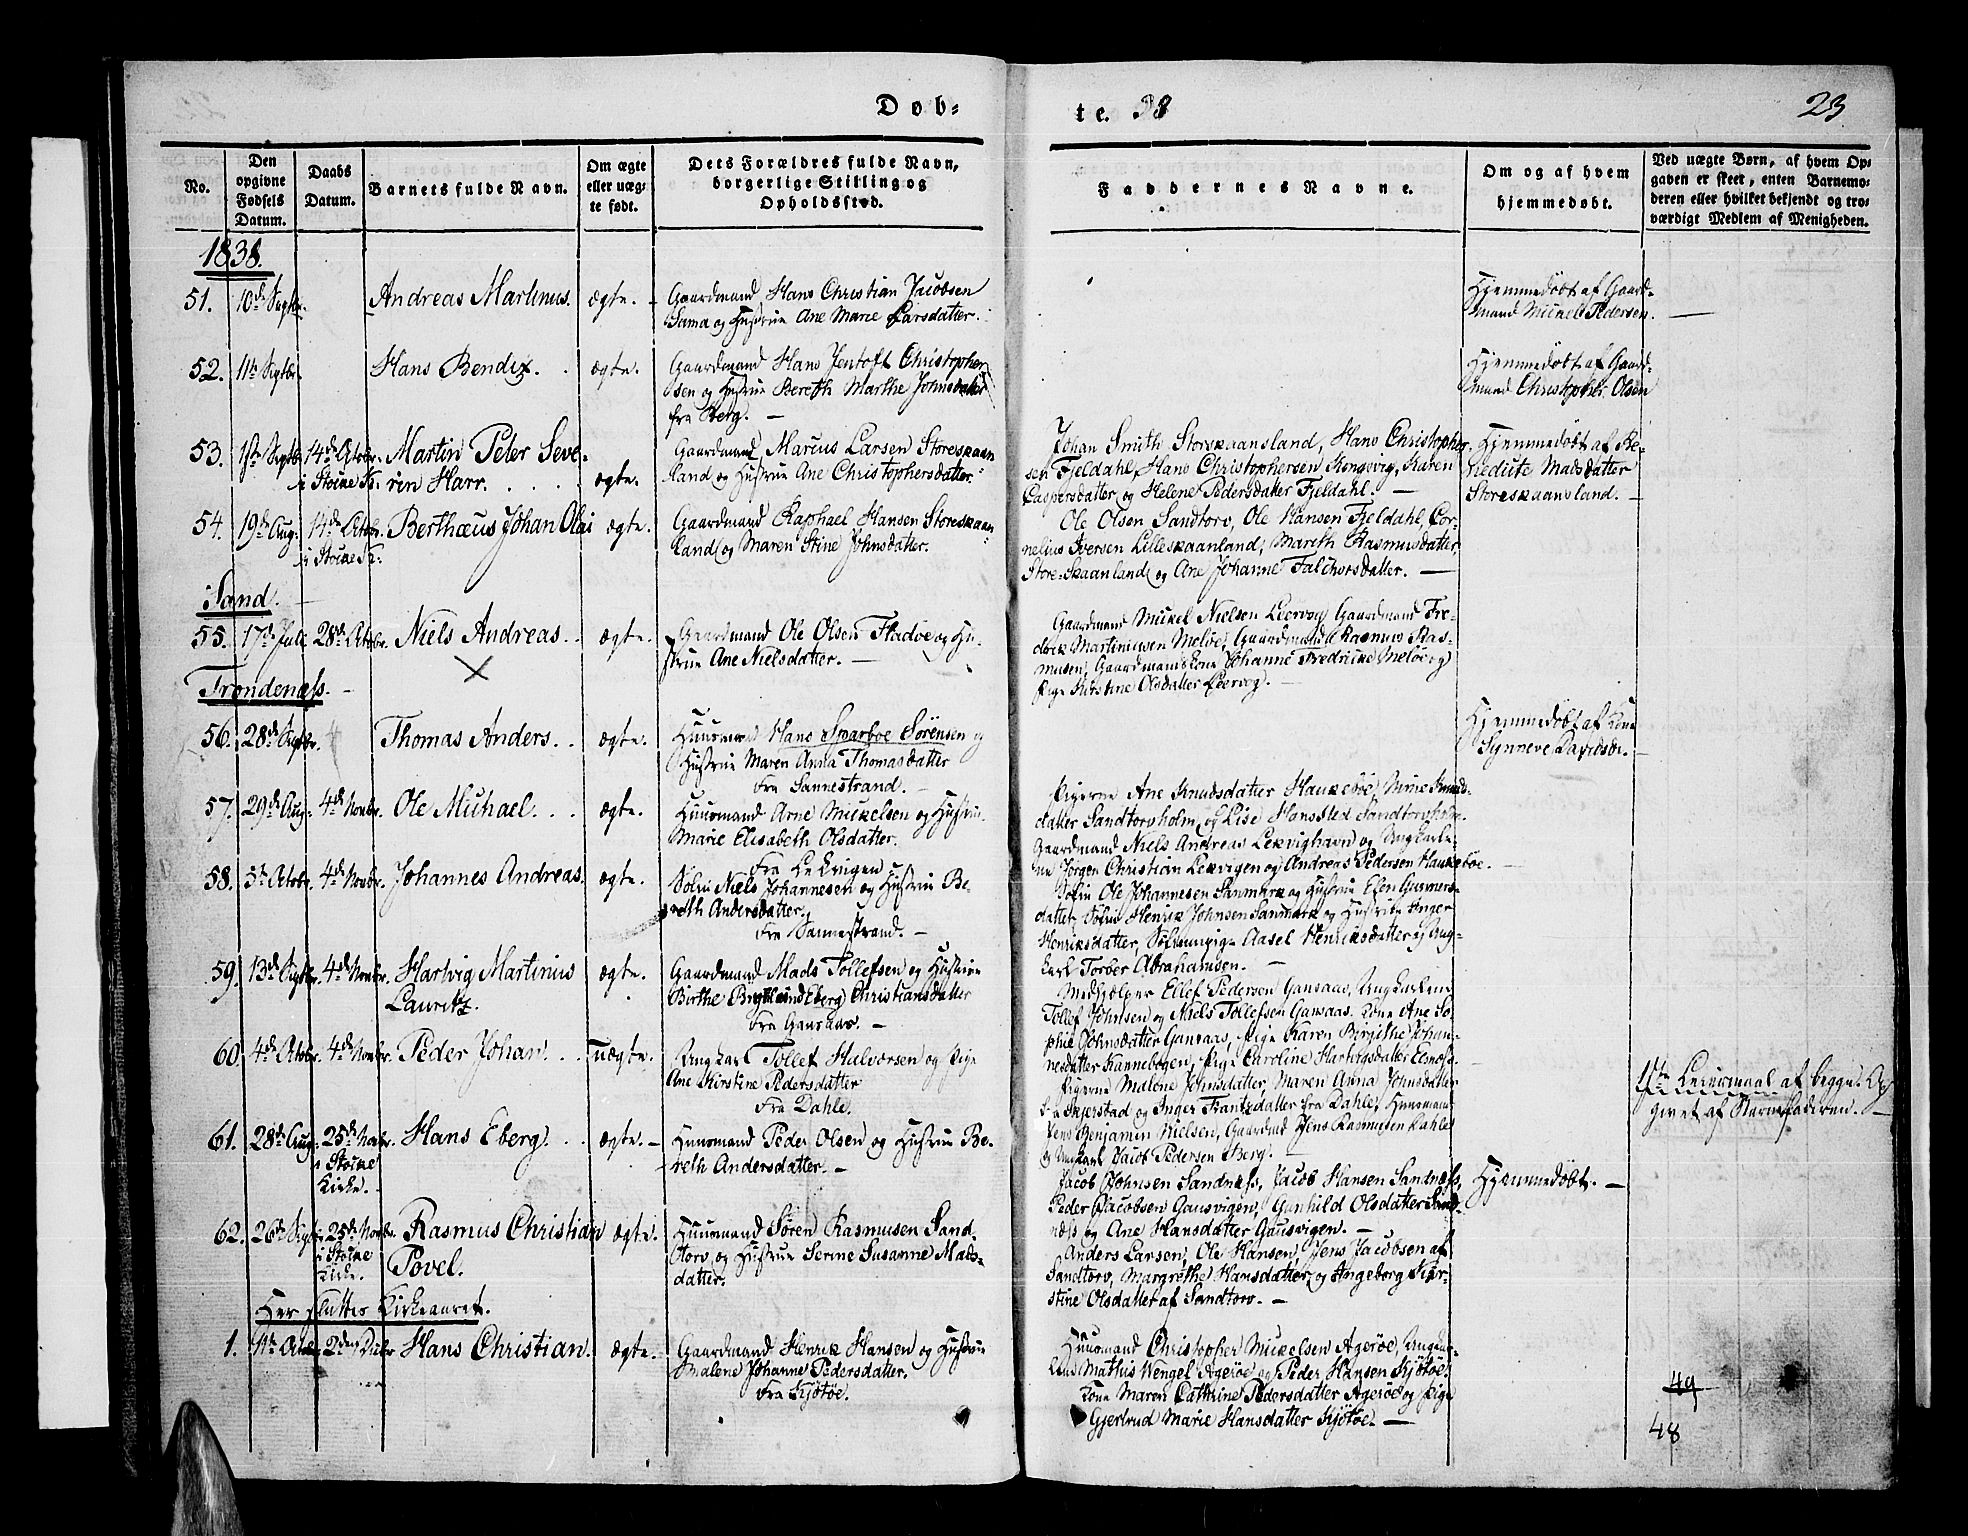 Døb=
te. 38
23
No.
Den opgivne Fødsels Datum.
Daabs Datum.
Barnets fulde Navn.
Om ægte eller uæg-te født.
Dets Forældres fulde Navn, borgerlige Stilling og Opholdssted.
Faddernes Navne.
Om og af hvem hjemmedøbt.
Ved uægte Børn, af hvem Op-gaven er skeet, enten Barnemo-deren eller hvilket bekjendt og tro-værdigt Medlem af Menigheden.
1838.
51. 10de Septbr. Andreas Martinus. ægte. Gaardmand Hans Christian Jacobsen
Sama og Hustrue Ane Marie Larsdatter.
Hjemmedøbt af Gaard-
mand Mickel Pedersen.
52. 11te Septbr. Hans Bendix. ægte. Gaardmand Hans Jentoft Christopher
sen og Hustrue Bereth Marthe Johnsdatter
fra Berg. —
Hjemmedøbt af Gaard-
mand Christopher Olsen
53. Septbr. 14de Octobr. i Stocke K. Martin Peter Seve-
rin Harr. ægte. Gaardmand Marcus Larsen Storeskaan
land og Hustrue Ane Christophersdatter.
Johan Smith Storskaansland, Hans Christopher
sen Fjeldahl, Hans Christophersen Kongsvig, Karen
Caspersdatter og Helene Pedersdatter Fjeldahl. —
Hjemmedøbt af Be-
nedicte Madsdatter
Storeskaansland. —
54. 19de Aug. 14de Octobr. i Stocke K. Berthæus Johan Olai ægte. Gaardmand Raphael Hansen Storeskaan
land og Maren Stine Johnsdatter.
Ole Olsen Sandtorv, Ole Hansen Fjeldahl, Cor-
nelius Iversen Lilleskaanland, Mareth Rasmusdatter
Store-Skaanland og Ane Johanne Falchorsdatter. —
Sand. —
55. 17de Juli 28de Octobr. Niels Andreas. ægte. Gaardmand Ole Olsen Fladøe og Hu-
strue Ane Nielsdatter. —
Gaardmand Mickel Nielsen Leervog Gaardmand Fre-
derik Martinussen Meløe, Gaardmand Rasmus Ras-
musen, Gaardmandskone Johanne Fredricke Meløe og
Pige Kirstine Olsdatter Leervog. —
Trondenæss. —
56. 28de Septbr. 4 Thomas Anders. ægte. Huusmand Hans Sparboe Sørensen og
Hustrue Maren Anna Thomasdatter
fra Sannestrand. —
Hjemmedøbt af Kone
Synneve Davidsdr.
57. 29de Aug. 4de Novbr. Ole Michael. ægte. Huusmand Arne Mickelsen og Hustrue
Marie Elisabeth Olsdatter.
Fra Leckvigen
Pigerne Ane Knudsdatter Haukebøe, Nine Knuds-
datter Sandtorvholm og Lise Hansdted Sandtorvholm.
Gaardmand Niels Andreas Lekvighavn og Ungkarle-
ne Jørgen Christian Lekvigen og Andreas Pedersen Haukebøe.
58. 5te Octobr. 4de Novbr. Johannes Andreas. ægte. Søfin Niels Johannesen og Hustrue Be-
reth Andersdatter,
Fra Sannestrand. —
Søfin Ole Johannesen Sanmark og Hustrue Elen Gunners-
datter, Søfin Henrik Johnsen Sanmark og Hustrue Inger
Henriksdatter, Søfinnpige Aasel Henriksdatter og Ung-
karl Torber Abrahamsen. —
59. 13de Septbr. 4de Novbr. Hartvig Martinius
Lauretz. ægte. Gaardmand Mads Tollefsen og Hustrue
Birthe Eberg Christiansdatter
Fra Gansaas. —
Medhjelper Ellef Pedersen Gansaas, Ungkarlene
Tollef Johnsen og Niels Tollefsen Gansaas. Kone Ane So-
phie Johnsdatter Gansaas, Pige Karen Birgithe Johan-
nesdatter Kannebogen, Pige Caroline Hartvigsdatter Elsnæss.
60. 4de Octobr. 4de Novbr. Peder Johan. uægte. Ungkarl Tollef Halvorsen og Pige
Ane Kirstine Pedersdatter
Fra Dahle.
Pigerne Malene Johnsdatter, Maren Anna Johnsdatter
fra Skjerstad og Inger Frantzdatter fra Dahle, Huusmand
Jens Benjamin Nielsen, Gaardmd Jens Rasmussen Dahle
og Ungkarl Jacob Pedersen Berg. —
1ste Leiermaal af begge. Op-
givet af Barnefaderen. —
61. 28de Aug. 25de Novbr. i Stocke Kirke. Hans Eberg. ægte. — Huusmand Peder Olsen og Hustrue Be-
reth Andersdatter. —
Jacob Johnsen Sandnæss, Jacob Hansen Sandnæss,
Peder Jacobsen Gausvigen, Gunhild Olsdatter Sand-
næss og Ane Hansdatter Gausvigen. —
Hjemmedøbt. —
62. 26de Septbr. 25de Novbr. i Stocke Kirke. Rasmus Christian
Povel. ægte. Huusmand Søren Rasmusen Sand
torv og Hustrue Serine Susanne Mads-
datter.
Anders Larsen, Ole Hansen, Jens Jacobsen af
Sandtorv, Margrethe Hansdatter og Angeborg Kir-
stine Olsdatter af Sandtorv. —
Her slutter Kirkeaaret.
1. 2den Decbr Hans Christian. ægte. Gaardmand Henrik Hansen og Hustrue
Malene Johanne Pedersdatter.
Fra Kjøtøe.
Huusmand Christopher Mickelsen Agerøe, Ungkar-
lene Mathis Wengel Agerøe og Peder Hansen Kjøtøe.
Kone Maren Cathrine Pedersdatter Agerøe og Pige
Gjertrud Marie Hansdatter Kjøtøe. —
49
48